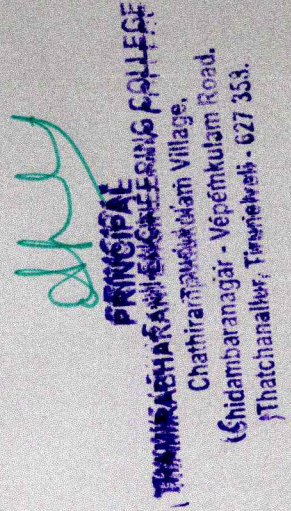 PRINCIPAL
THAMIRABHARANI ENGINEERING COLLEGE
Village,
(Chidambaranagar - Vepemkulam Road.
Thatchanallur, Tirunelveli - 627 353.